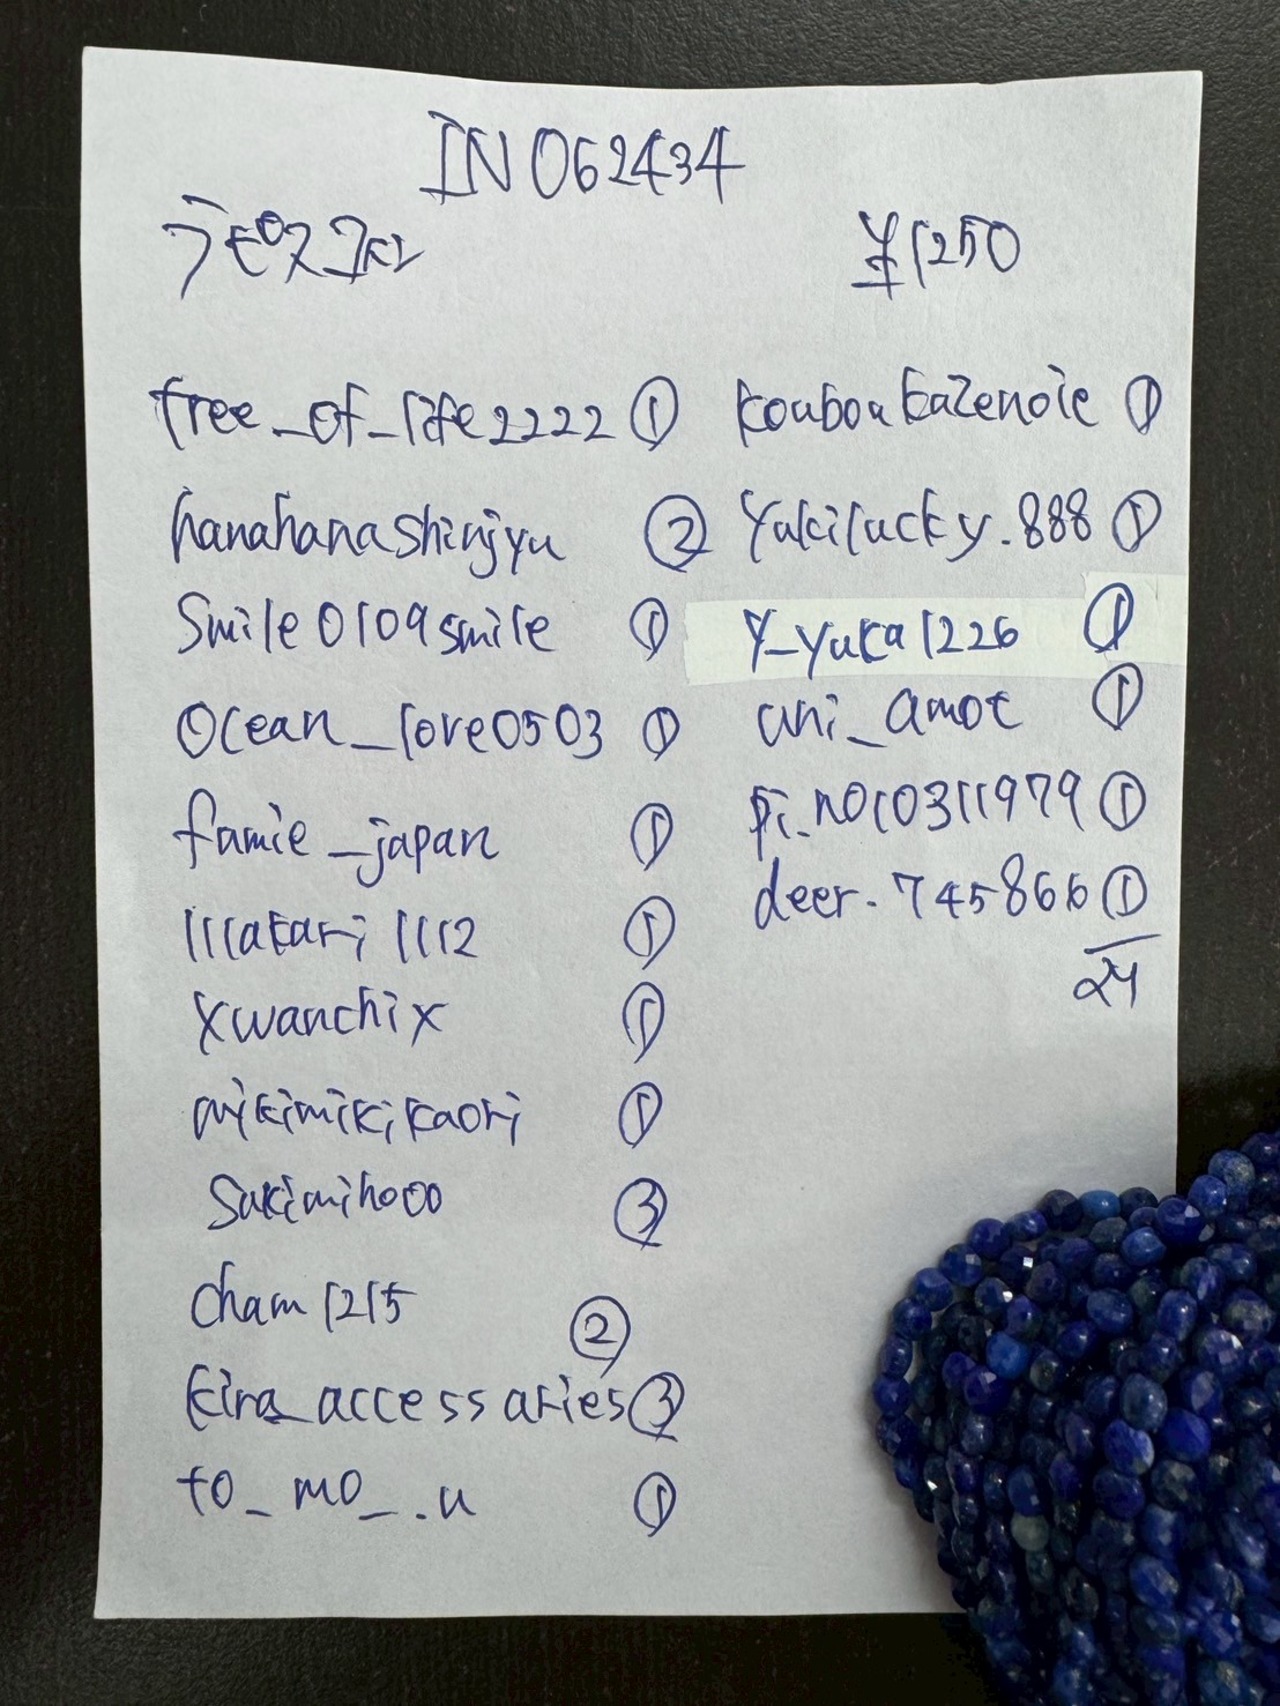 IN062434
¥1250
free_of_life2222 ①
hanahanashinjyu ②
Smile0109smile ①
Ocean_love0503 ①
famie_japan ①
lllakari1112 ①
xwanchix ①
mikimikikaori ①
Sakimihooo ③
cham1215 ②
kira_accessaries ③
to_mo_.u ①
kouboukazenoie ①
Yukilucky.888 ①
y_yuka1226 ①
uni_amoe ①
pi_no10311979 ①
deer.745866 ①
24